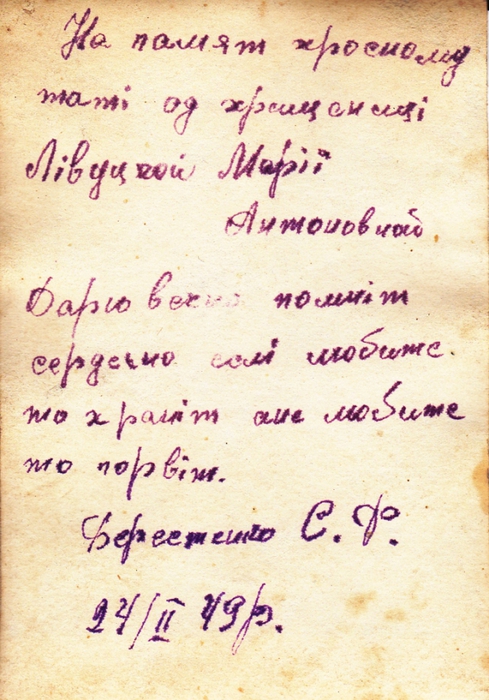 На памят хросному
таті од хрещениці
Лівуцкой Марії
Антоновнай
Дарю вечно помніт
сердечно еслі любите
то храніт а не любите
то порвіт.
С. Ф.
24/II 49р.